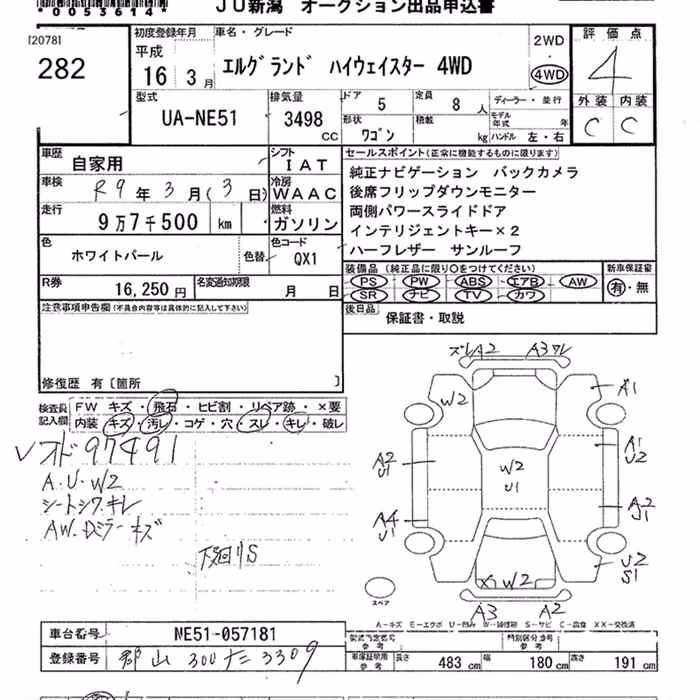 *0053614*
JU新潟 オークション出品申込書
[2078]
282
初度登録年月 車名・グレード
平成 16年 3月 エルグランド ハイウェイスター 4WD
2WD
4WD
評価点
4
外装 内装
C C
型式 UA-NE51
排気量 3498 CC
ドア 5 定員 8 人
形状 ワゴン 積載 kg
ディーラー・並行
モデル年式 年
ハンドル 左・右
車歴 自家用
シフト IAT
車検 R9年3月(3日)
冷房 WAAC
走行 9万7千500 km
燃料 ガソリン
色 ホワイトパール 色替
色コード QX1
R券 16,250円
名変通知期限 月 日
セールスポイント(正常に機能するものに限ります)
純正ナビゲーション バックカメラ
後席フリップダウンモニター
両側パワースライドドア
インテリジェントキー×2
ハーフレザー サンルーフ
装備品(純正品に限り○をつけてください)
PS PW ABS エアB AW
SR ナビ TV カワ
新車保証書
有・無
後日品 保証書・取説
注意事項申告欄(不具合内容等は具体的に記入して下さい)
修復歴 有〔箇所 〕
検査員記入欄
FW キズ・飛石・ヒビ割・リペア跡・×要
内装 キズ・汚レ・コゲ・穴・スレ・キレ・破レ
オド 97491
A・U・W2
シートシワ、キレ
AW・Dミラーキズ
下廻りS
ズレA2 A3ワレ
W2 A1
A2 U1
A1 U2
W2 U1
A4 U1
A2
U2 S1
X1 W2
A3 A2
スペア
A-キズ E-エクボ
S-サビ
XX-交換済
車台番号 NE51-057181
登録番号 郡山 300 3309
型式指定番号 参考
類別区分番号 参考
車庫証明用 参考
長さ 483 cm 幅 180 cm 高さ 191 cm